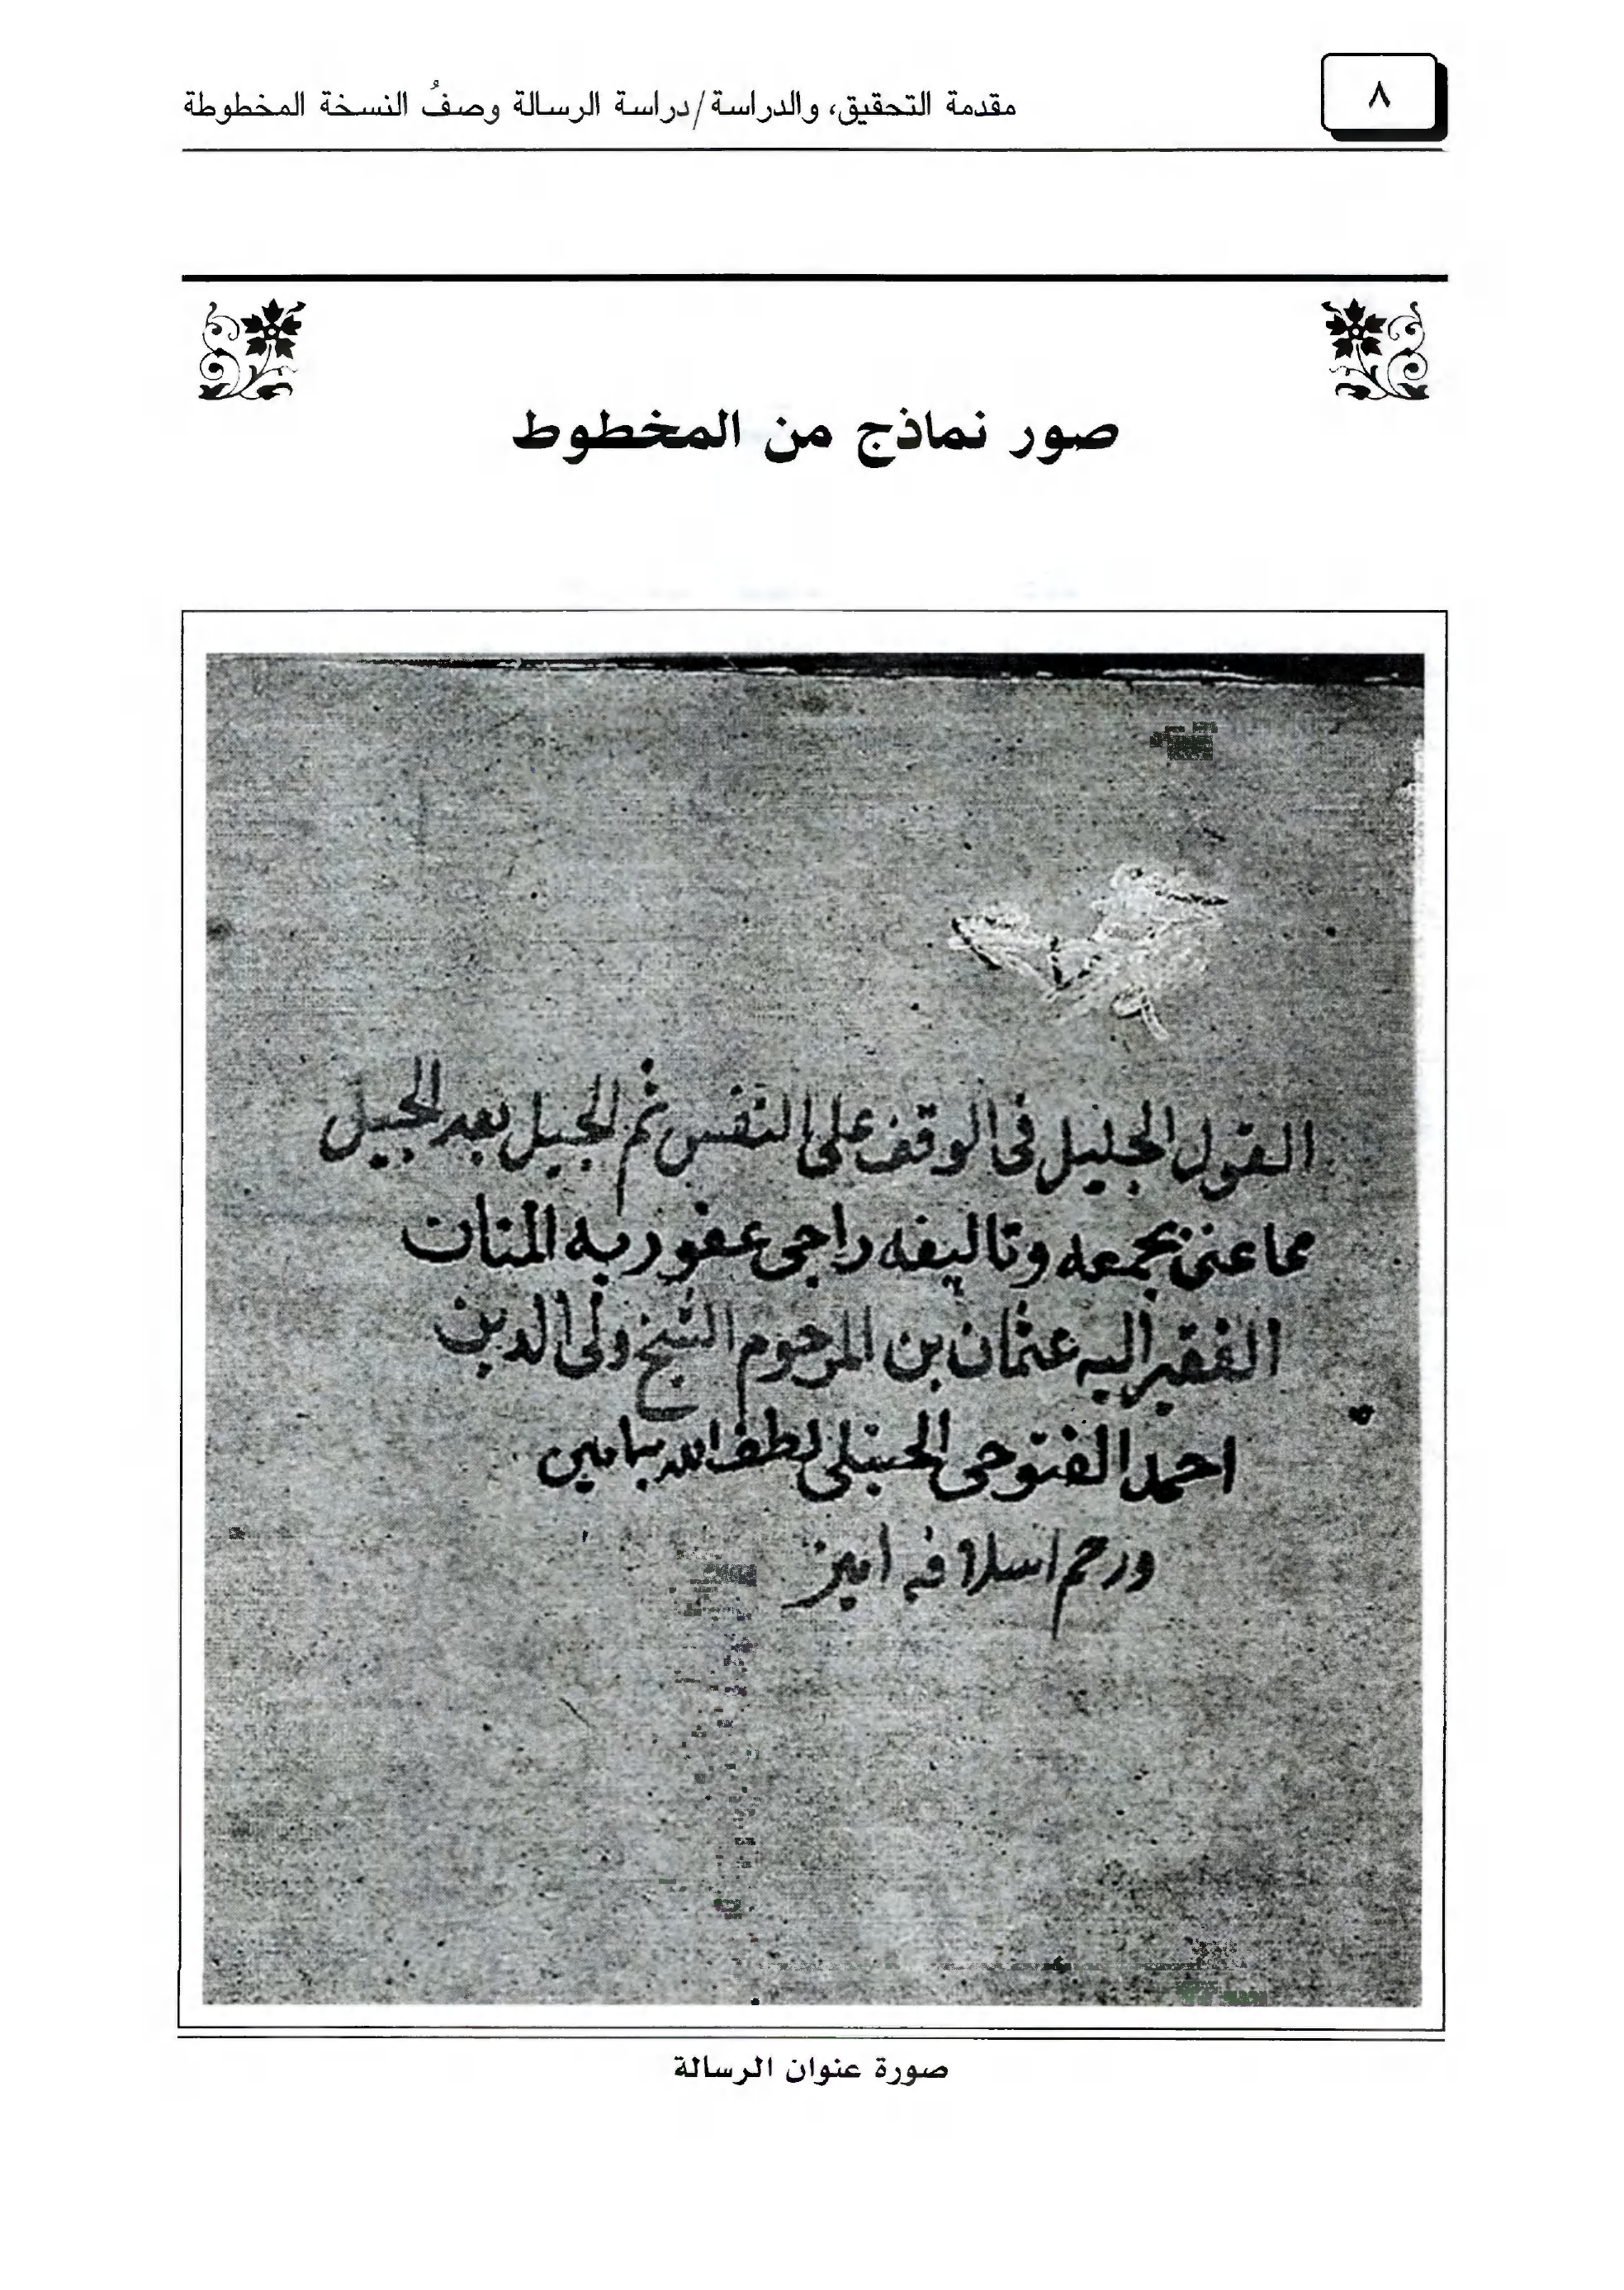 ٨
مقدمة التحقيق، والدراسة/دراسة الرسالة وصفُ النسخة المخطوطة
صور نماذج من المخطوط
القول الجليل فى الوقف على النفس ثم الجيل بعد الجيل
مما عنى بجمعه وتاليفه راجى عفو ربه المنان
الفقير اليه عثمان بن المرحوم الشيخ ولى الدين
احمد الفتوحى الحنبلى لطف الله بهما مين
ورحم اسلافه امين
صورة عنوان الرسالة